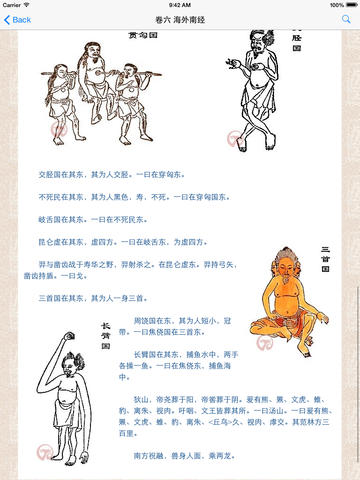 Carrier
9:42 AM
100%
Back
卷六 海外南经
贯匈国
胫国
交胫国在其东，其为人交胫。一曰在穿匈东。
不死民在其东，其为人黑色，寿，不死。一曰在穿匈国东。
岐舌国在其东。一曰在不死民东。
昆仑虚在其东，虚四方。一曰在岐舌东，为虚四方。
羿与凿齿战于寿华之野，羿射杀之。在昆仑虚东。羿持弓矢，
凿齿持盾。一曰戈。
三首国在其东，其为人一身三首。
三首国
周饶国在其东，其为人短小，冠
带。一曰焦侥国在三首东。
长臂国在其东，捕鱼水中，两手
各操一鱼。一曰在焦侥东，捕鱼海
中。
长臂国
狄山，帝尧葬于阳，帝喾葬于阴。爰有熊、罴、文虎、蜼、
豹、离朱、视肉。吁咽、文王皆葬其所。一曰汤山。一曰爰有熊、
罴、文虎、蜼、豹、离朱、<丘鸟>久、视肉、虖交。其范林方三
百里。
南方祝融，兽身人面，乘两龙。